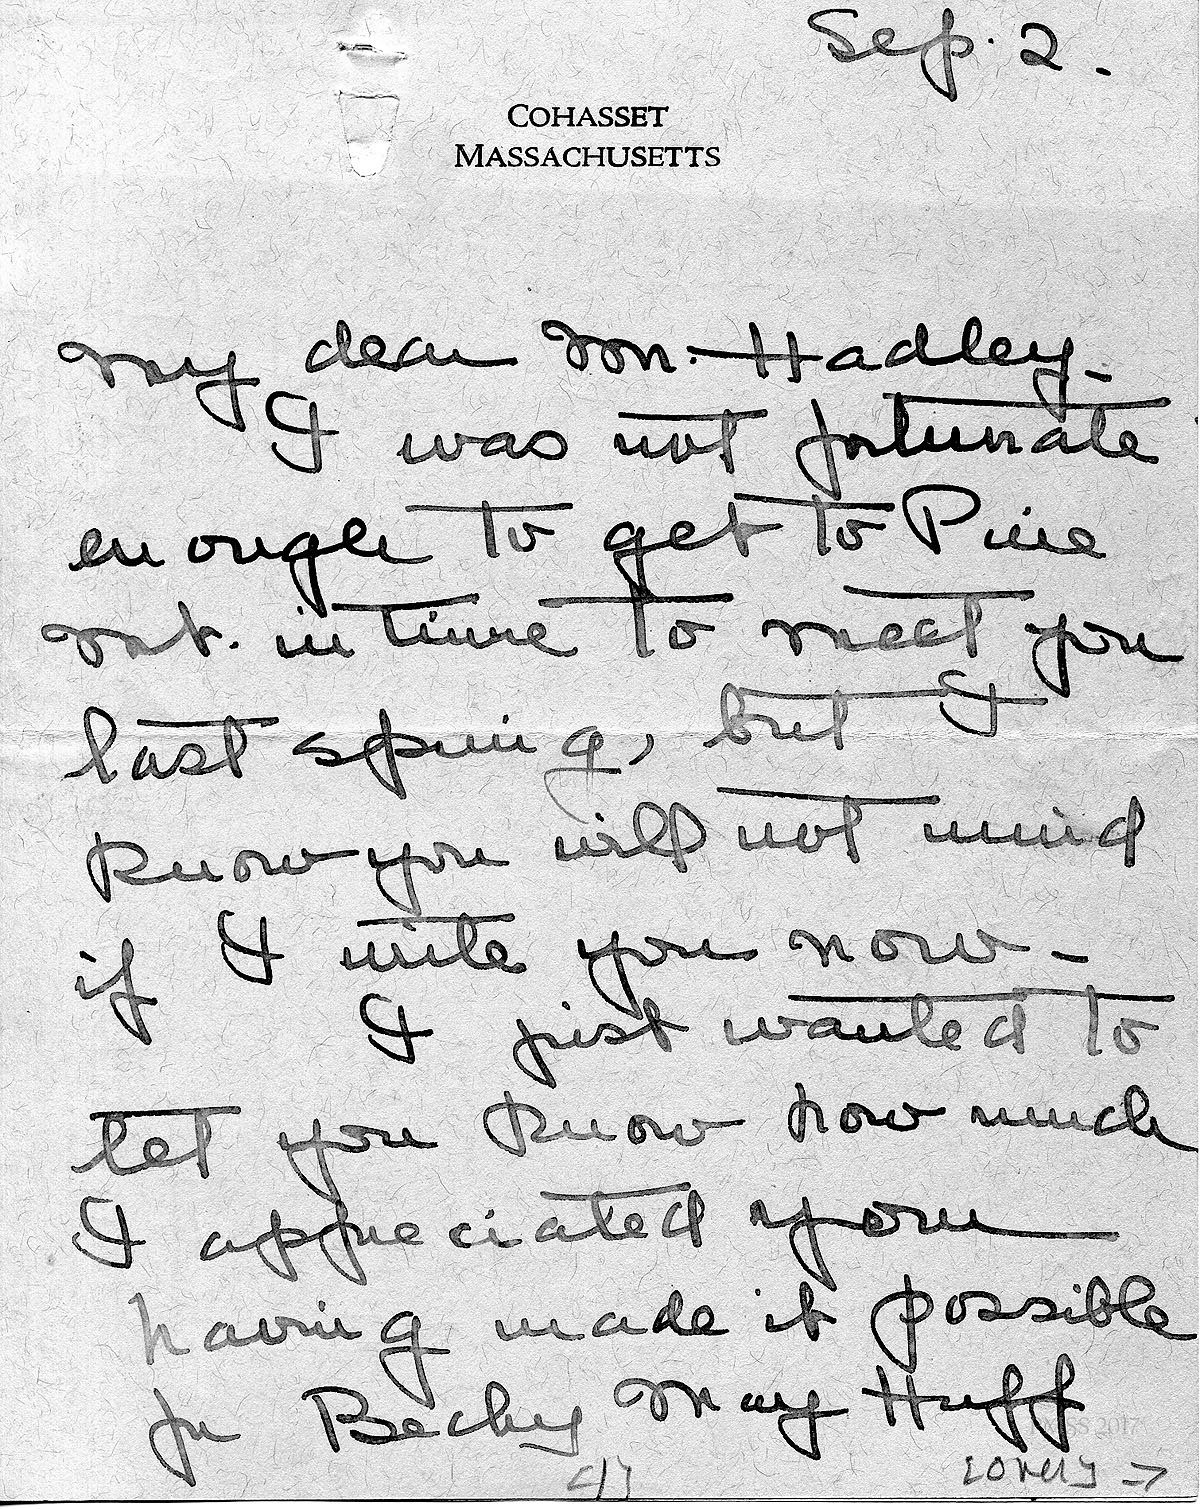 Sep. 2.
COHASSET
MASSACHUSETTS
My dear Mr. Hadley -
I was not fortunate
enough to get to Pine
Mt. in time to meet you
last spring, but I
know you will not mind
if I write you now -
I just wanted to
let you know how much
I appreciated your
having made it possible
for Becky May Huff
PMSS 2017
Lovely →